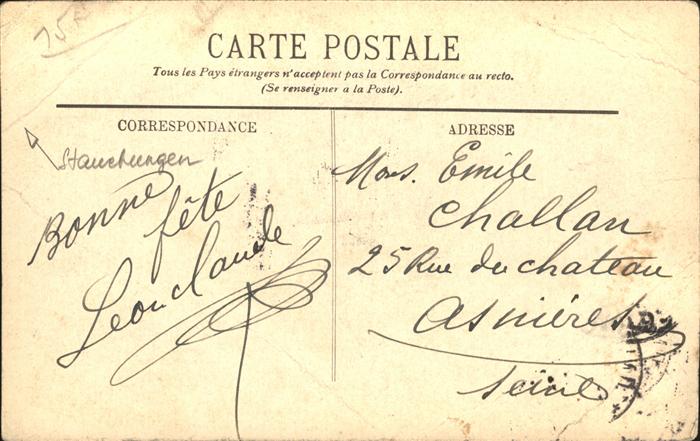 75
CARTE POSTALE
Tous les Pays étrangers n'acceptent pas la Correspondance au recto.
(Se renseigner a la Poste).
CORRESPONDANCE
Stauchungen
Bonne
fête
Leonclaude
ADRESSE
Mons. Emile
Challan
25 Rue du chateau
Asnières
Seine